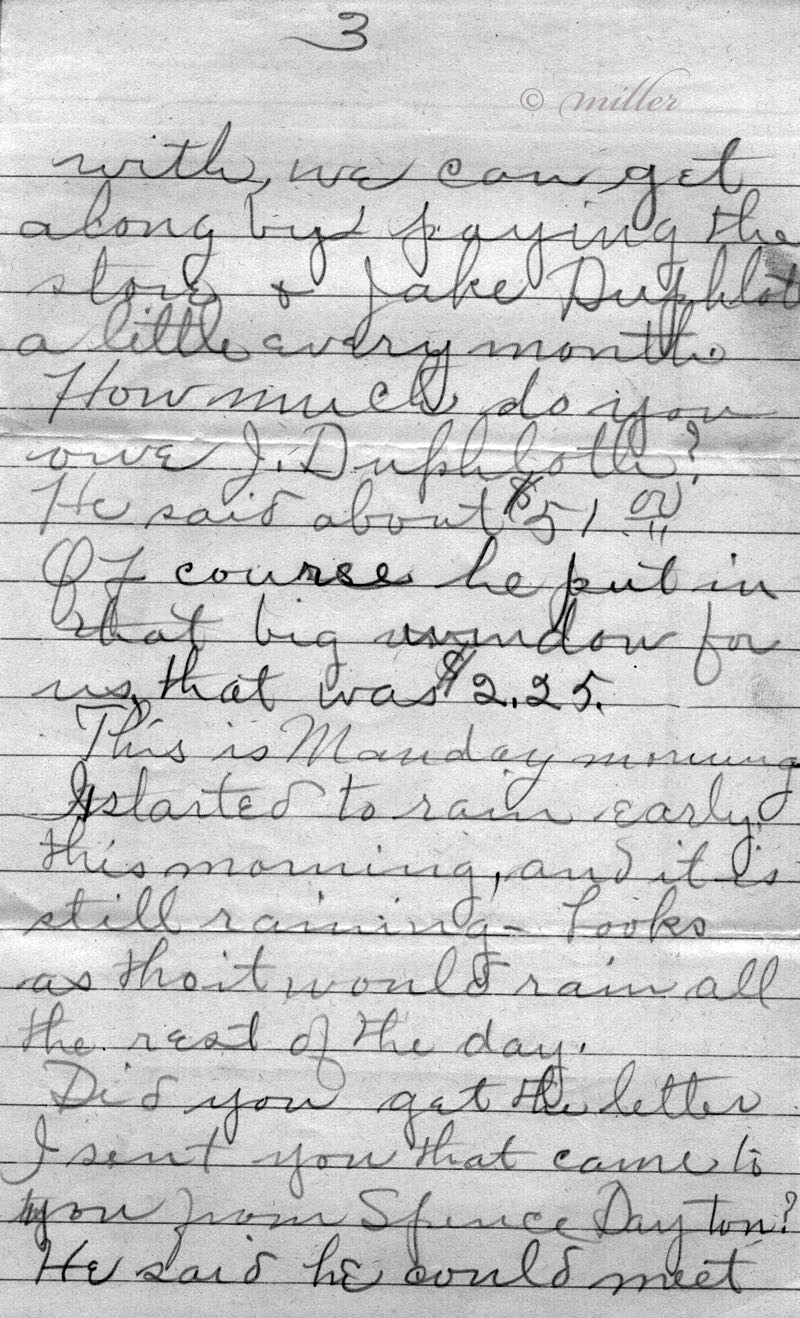 3
© miller
with, we can get
along by paying the
store & Jake Duphlot
a little every month.
How much do you
owe J. Duphloth?
He said about $51.00
Of course he put in
that big window for
us, that was $2.25.
This is Manday morning
It started to rain early
this morning, and it is
still raining - Looks
as tho it would rain all
the rest of the day.
Did you get the letter
I sent you that came to
you from Spence Dayton?
He said he could meet